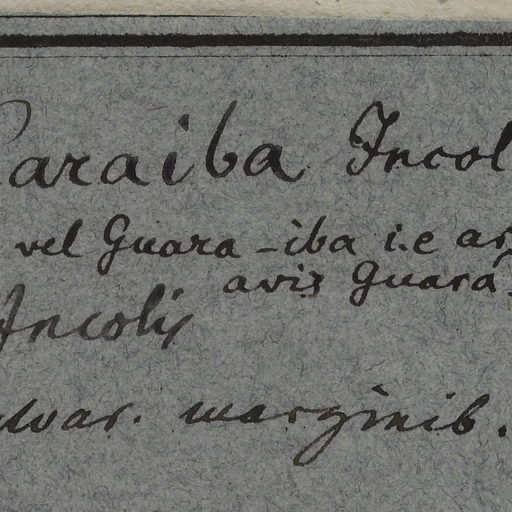 araiba Incol
vel Guara-iba i.e ar
avis Guara
Incolis
lvar. marginib.